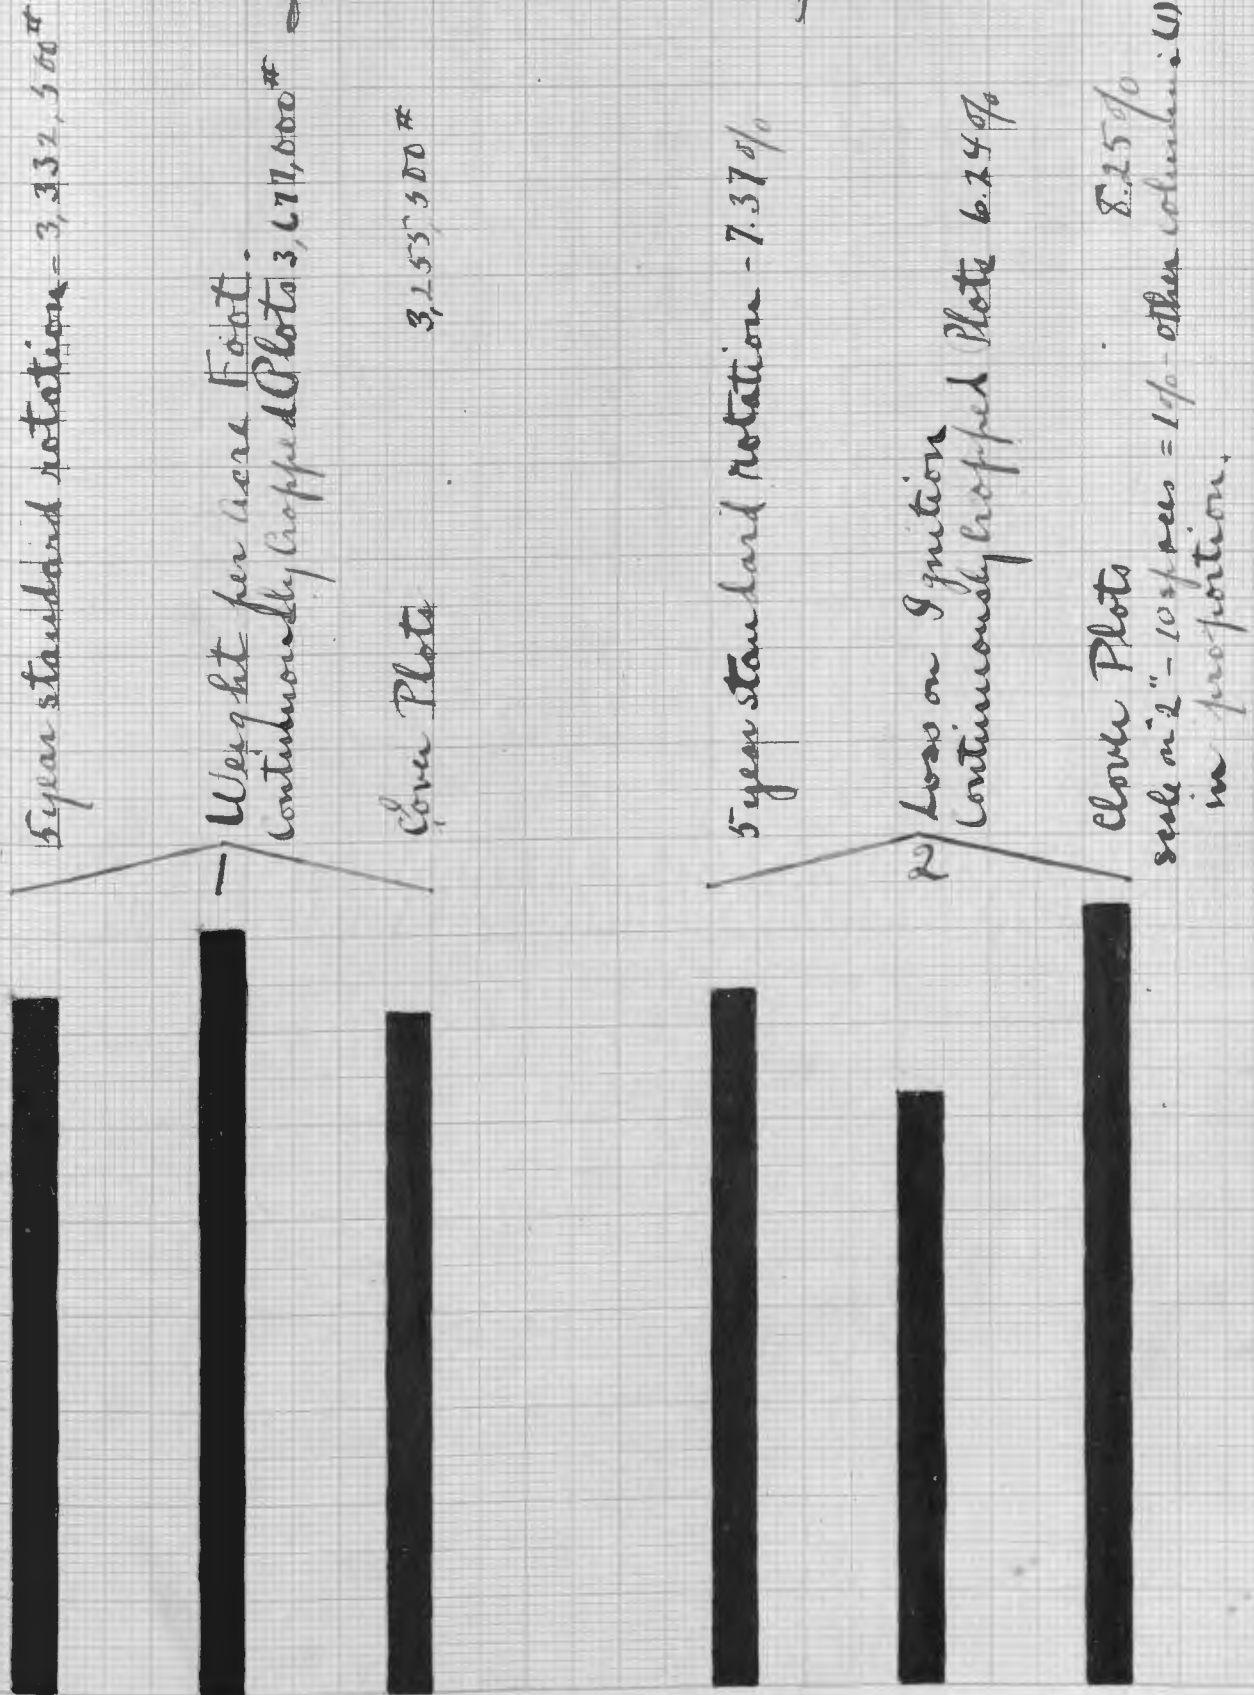 5 year standard rotation = 3,332,500#
1 Weight per Acre Foot.
Continuously Cropped Plots 3,677,000#
Cover Plots 3,255,500#
5 year standard rotation - 7.37%
2 Loss on Ignition
Continuously Cropped Plots 6.24%
Clover Plots 8.25%
scale on "2" - 10 spaces = 1% - other columns (1)
in proportion.